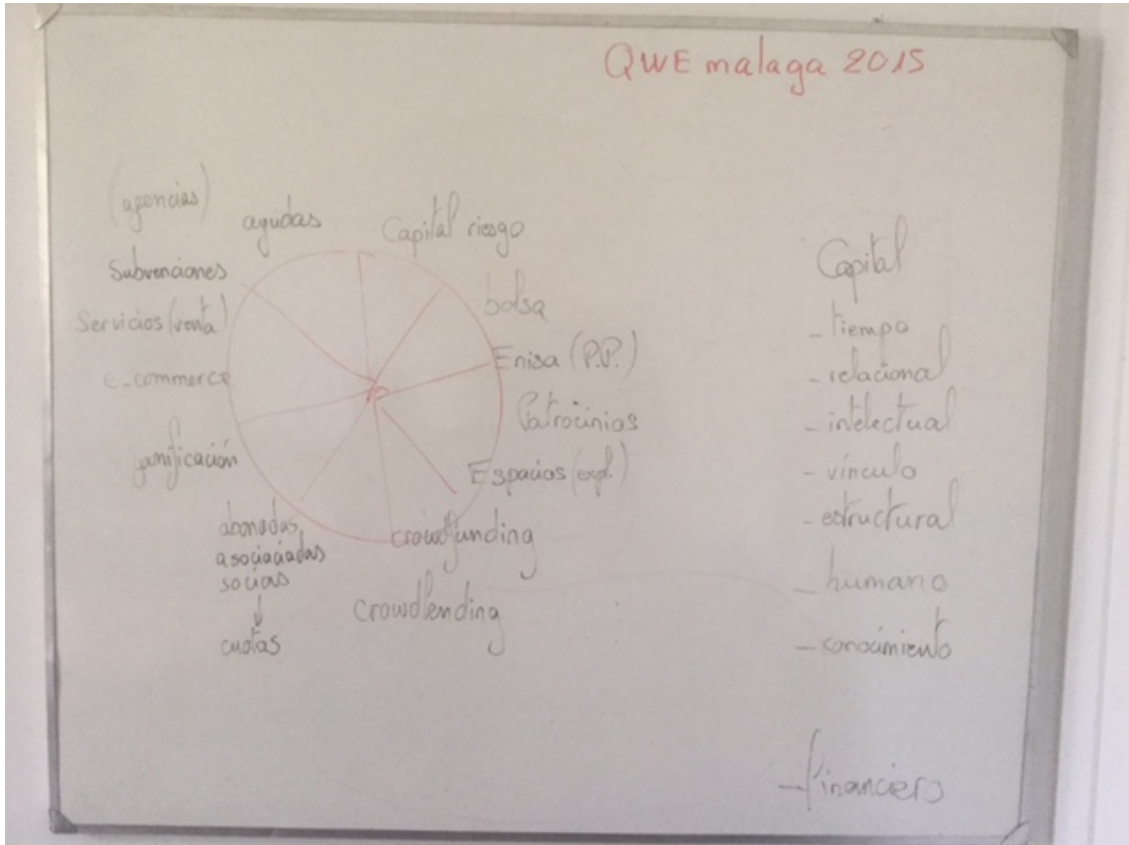 QWE malaga 2015
(agencias)
ayudas
Capital riesgo
Subvenciones
bolsa
Servicios (venta)
Enisa (P.P.)
e-commerce
Patrocinios
gamificación
Espacios (expl.)
abonadas,
asociaciadas
socias
↓
cuotas
crowdfunding
crowdlending
Capital
- tiempo
- relacional
- intelectual
- vínculo
- estructural
- humano
- conocimiento
- financiero